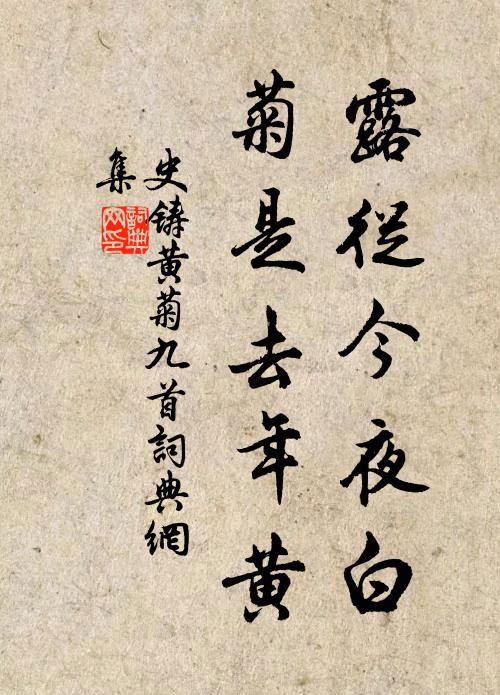 露從今夜白
菊是去年黃
史鑄黃菊九首詞典網
集
詞典網印